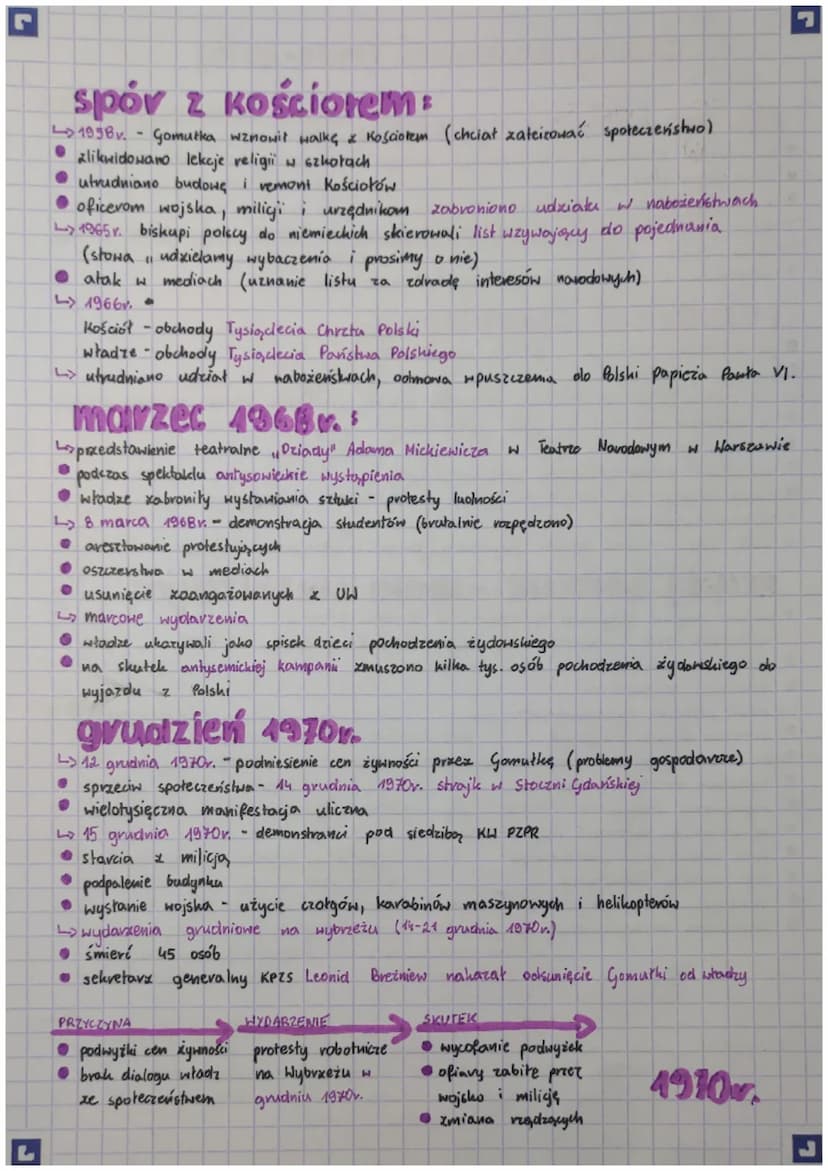 spór z Kościołem:
↳ 1958r. - Gomułka wznowił walkę z Kościołem (chciał zateizować społeczeństwo)
• zlikwidowano lekcje religii w szkołach
• utrudniano budowę i remont Kościołów
• oficerom wojska, milicji i urzędnikom zabroniono udziału w nabożeństwach
↳ 1965r. biskupi polscy do niemieckich skierowali list wzywający do pojednania
(słowa „udzielamy wybaczenia i prosimy o nie)
• atak w mediach (uznanie listu za zdradę interesów narodowych)
↳ 1966r. •
Kościół - obchody Tysiąclecia Chrztu Polski
władze - obchody Tysiąclecia Państwa Polskiego
↳ utrudniano udział w nabożeństwach, odmowa wpuszczenia do Polski Papieża Pawła VI.
marzec 1968r.:
↳ przedstawienie teatralne „Dziady" Adama Mickiewicza w Teatrze Narodowym w Warszawie
• podczas spektaklu antysowieckie wystąpienia
• władze zabroniły wystawiania sztuki - protesty ludności
↳ 8 marca 1968r. - demonstracja studentów (brutalnie rozpędzono)
• aresztowanie protestujących
• oszczerstwa w mediach
• usunięcie zaangażowanych z UW
↳ marcowe wydarzenia
• władze ukazywali jako spisek dzieci pochodzenia żydowskiego
• na skutek antysemickiej kampanii zmuszono kilka tys. osób pochodzenia żydowskiego do
wyjazdu z Polski
grudzień 1970r.
↳ 12 grudnia 1970r. - podniesienie cen żywności przez Gomułkę (problemy gospodarcze)
• sprzeciw społeczeństwa - 14 grudnia 1970r. strajk w Stoczni Gdańskiej
• wielotysięczna manifestacja uliczna
↳ 15 grudnia 1970r. - demonstranci pod siedzibą KW PZPR
• starcia z milicją
• podpalenie budynku
• wysłanie wojska - użycie czołgów, karabinów maszynowych i helikopterów
↳ wydarzenia grudniowe na wybrzeżu (14-21 grudnia 1970r.)
• śmierć 45 osób
• sekretarz generalny KPZS Leonid Breżniew nakazał odsunięcie Gomułki od władzy
PRZYCZYNA
• podwyżki cen żywności
• brak dialogu władz
ze społeczeństwem
WYDARZENIE
protesty robotnicze
na Wybrzeżu w
grudniu 1970r.
SKUTEK
• wycofanie podwyżek
• ofiary zabite przez
wojsko i milicję
• zmiana rządzących
1970r.